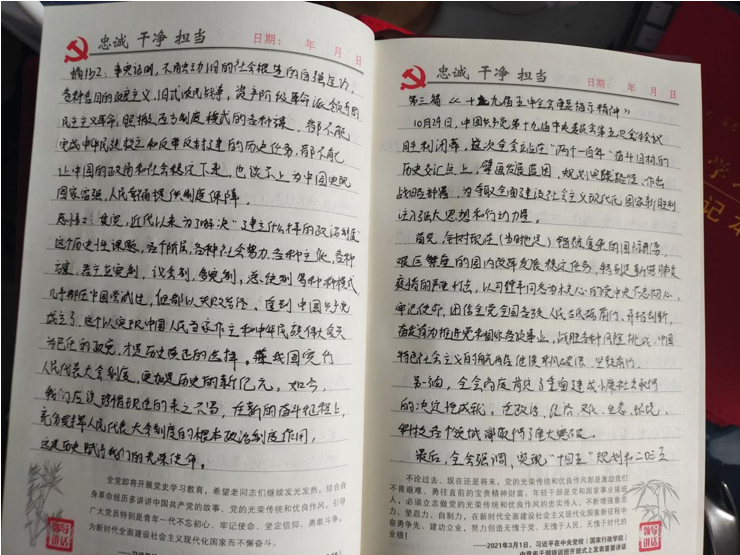 忠诚 干净 担当
日期： 年 月 日
摘抄2：事实证明，不触动旧的社会根基的自强运动，
各种名目的改良主义，旧式农民战争，资产阶级革命派领导的
民主主义革命，照搬西方制度模式的各种方案，都不能
完成中华民族救亡和反帝反封建的历史任务，都不能
让中国的政局和社会稳定下来，也谈不上为中国实现
国家富强、人民幸福提供制度保障。
感悟2：其实，近代以来为了解决“建立什么样的政治制度”
这个历史性课题，各个阶层，各种社会势力，各种主张，各种
方案，君主立宪制，议会制，多党制，总统制等种种模式
几乎都在中国尝试过，但都以失败告终。直到中国共产党
成立了，这个以实现中国人民当家作主和中华民族伟大复兴
为己任的政党，才是历史真正的选择。我国实行
人民代表大会制度，更加是历史的新纪元。如今，
我们应该珍惜现在的来之不易，在新的奋斗征程上，
充分发挥人民代表大会制度的根本政治制度作用，
这是历史赋予我们的光荣使命。
全党即将开展党史学习教育，希望老同志们继续发光发热，结合自
身革命经历多讲讲中国共产党的故事、党的光荣传统和优良作风，引导
广大党员特别是青年一代不忘初心、牢记使命、坚定信仰、勇敢斗争，
为新时代全面建设社会主义现代化国家而不懈奋斗。
领导
讲话
忠诚 干净 担当
日期： 年 月 日
第三篇《十九届五中全会重要指示精神》
10月29日，中国共产党第十九届中央委员会第五次全体会议
胜利闭幕，这次全会站在“两个一百年”奋斗目标的
历史交汇点上，擘画发展蓝图，规划实践路径，作出
战略部署，为夺取全面建设社会主义现代化国家新胜利
注入强大思想和行动力量。
首先，全会对现在（当时）错综复杂的国际形势，
艰巨繁重的国内改革发展稳定任务，特别是新冠肺炎
疫情的严重冲击，以习近平同志为核心的党中央不忘初心、
牢记使命，团结全党全国各族人民砥砺前行、开拓创新，
奋发有为推进党和国家各项事业，战胜各种风险挑战，中国
特色社会主义的航船继续乘风破浪，坚毅前行。
另一方面，全会高度肯定了全面建成小康社会取得
的决定性成就，在政治、经济、文化、生态、环境、
科技各个领域都取得了重大突破。
最后，全会强调，实现“十四五”规划和二〇三五
不论过去、现在还是将来，党的光荣传统和优良作风都是激励我们
不畏艰难、勇往直前的宝贵精神财富。年轻干部是党和国家事业接班
人，必须立志做党的光荣传统和优良作风的忠实传人，不断增强意志
力、坚忍力、自制力，在新时代全面建设社会主义现代化国家新征程中
奋勇争先、建功立业，努力创造无愧于党、无愧于人民、无愧于时代的
业绩！
——2021年3月1日，习近平在中央党校（国家行政学院）
中青年干部培训班开班式上发表重要讲话
领导
讲话
学
记本